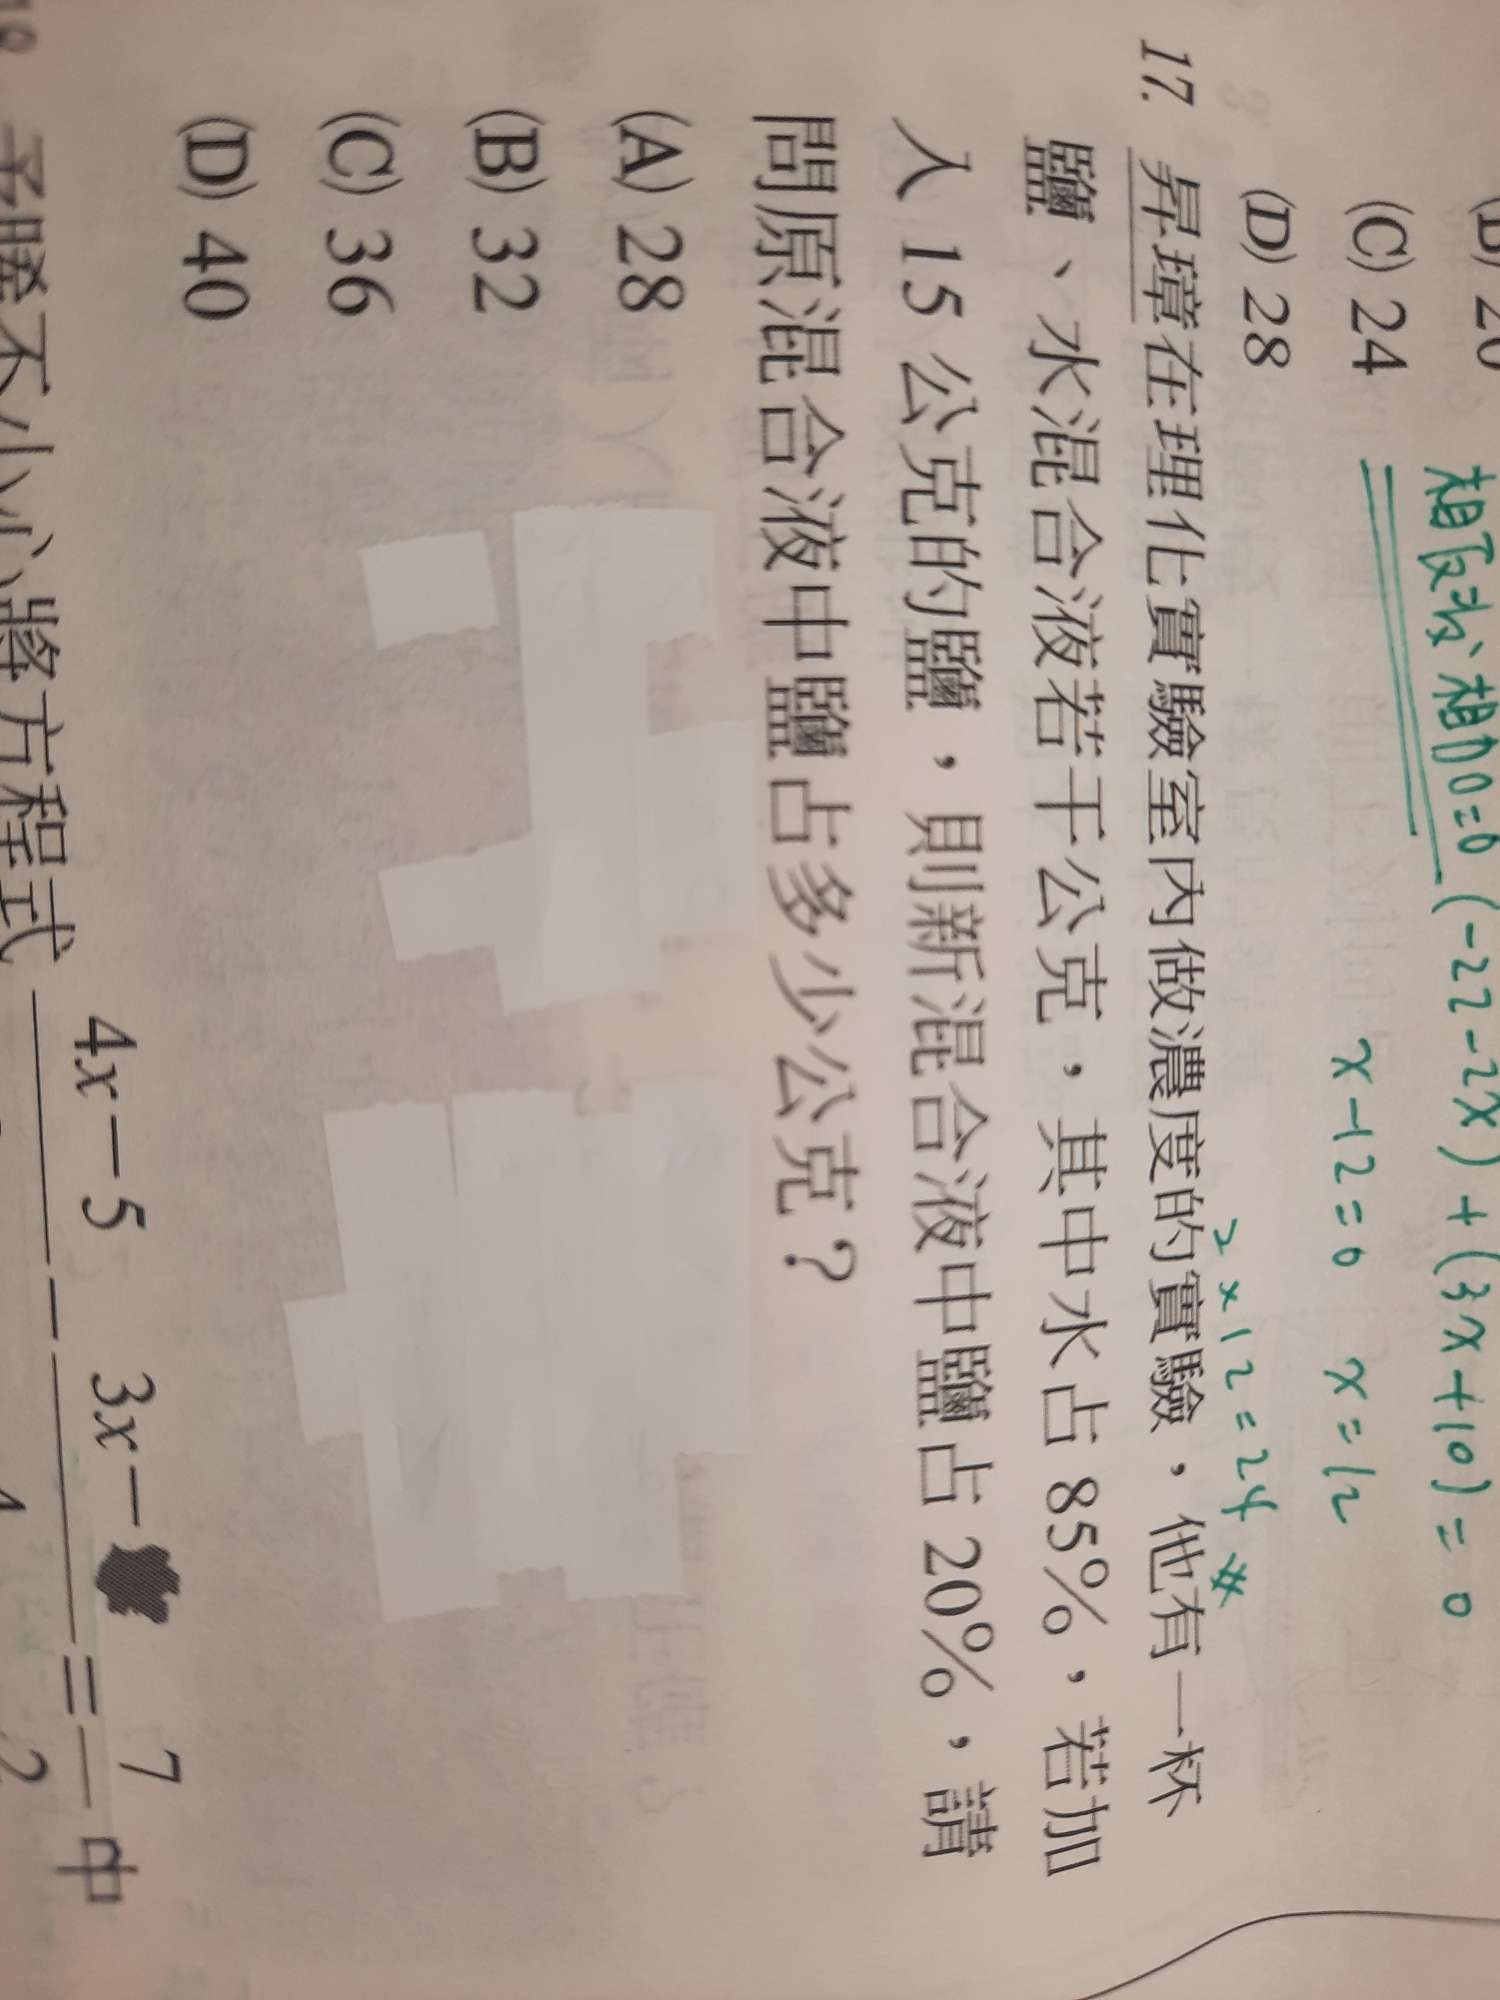 (C) 24
(D) 28
相反数 相加=0 (-22-2x)+(3x+10)=0
x-12=0 x=12
2×12=24 #
17. 昇璋在理化實驗室內做濃度的實驗，他有一杯
鹽、水混合液若干公克，其中水占 85%，若加
入 15 公克的鹽，則新混合液中鹽占 20%，請
問原混合液中鹽占多少公克？
(A) 28
(B) 32
(C) 36
(D) 40
不小心將方程式 4x-5 - 3x- = 7 中
2